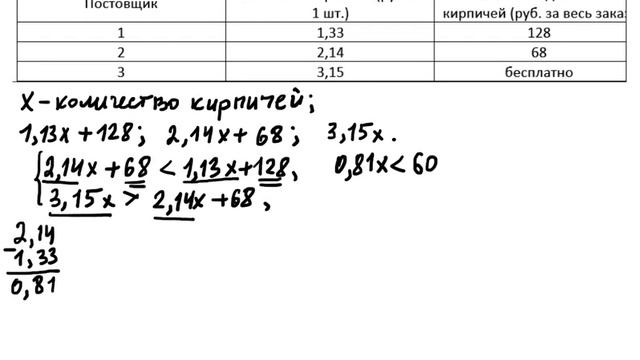 Поставщик
1 шт.) кирпичей (руб. за весь зака
1 1,33 128
2 2,14 68
3 3,15 бесплатно
X - количество кирпичей;
1,13x + 128; 2,14x + 68; 3,15x.
2,14x + 68 < 1,13x + 128, 0,81x < 60
3,15x > 2,14x + 68,
2,14
- 1,33
0,81